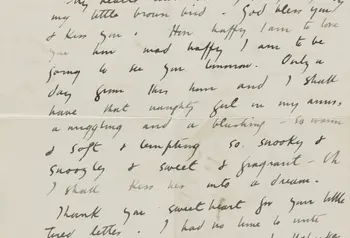 My hearts
my little brown bird. God bless you
& kiss you. How happy I am to love
you how mad happy I am to be
going to see you tomorrow. Only a
day from this hour and I shall
have that naughty girl in my arms,
a niggling and a blushing - so warm
& soft & tempting so snooky &
snoogley & sweet & fragrant - Oh
I shall kiss her into a dream.
Thank you sweetheart for your little
tired letter. I had no time to write